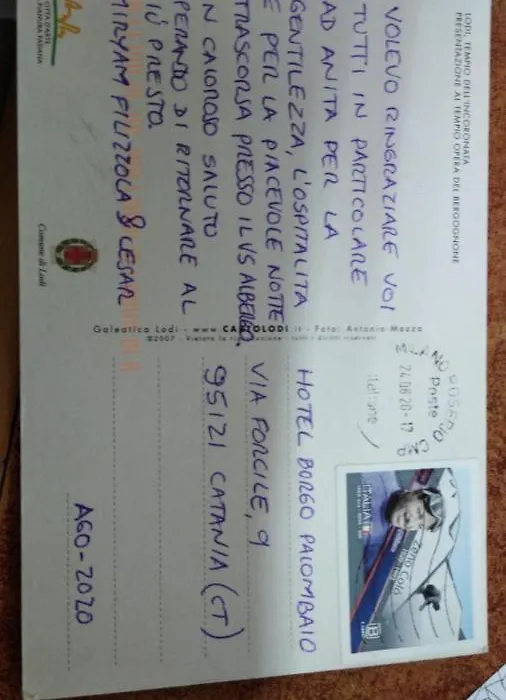 LODI, TEMPIO DELL'INCORONATA
PRESENTAZIONE AL TEMPIO OPERA DEL BERGOGNONE
VOLEVO RINGRAZIARE VOI
TUTTI IN PARTICOLARE
AD ANITA PER LA
GENTILEZZA, L'OSPITALITA
E PER LA PIACEVOLE NOTTE
TRASCORSA PRESSO IL VS ALBERGO.
UN CALOROSO SALUTO
SPERANDO DI RITORNARE AL
PIÚ PRESTO.
MIRYAM FILIZZOLA & CESAR
CITTÀ D'ARTE
PIANURA PADANA
Comune di Lodi
Galeatica Lodi - www.CARTOLODI.it - Foto: Antonio Mazza
©2007 - Vietata la riproduzione - tutti i diritti riservati
MILANO
Poste
24 08 20-17
Italiane
ITALIA
Zeno Colò
B
HOTEL BORGO PALOMBAIO
VIA FORCILE, 9
95121 CATANIA (CT)
AGO-2020